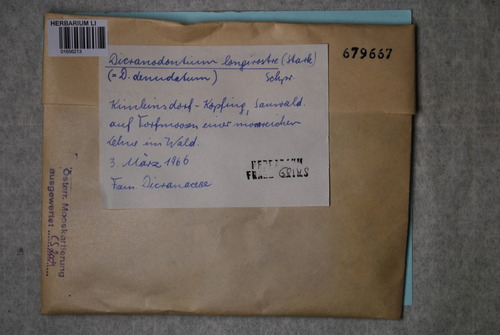 HERBARIUM LI
679667
Dicranodontium longirostre (Stark)
(= D. denudatum) Schpr
Kimleinsdorf - Kopfing, Sauwald.
auf Torfmoosen einer moosreichen
Lehne im Wald.
3. März 1966
HERBARIUM
FRANZ GRIMS
Fam. Dicranaceae
Österr. Mooskartierung
ausgewertet